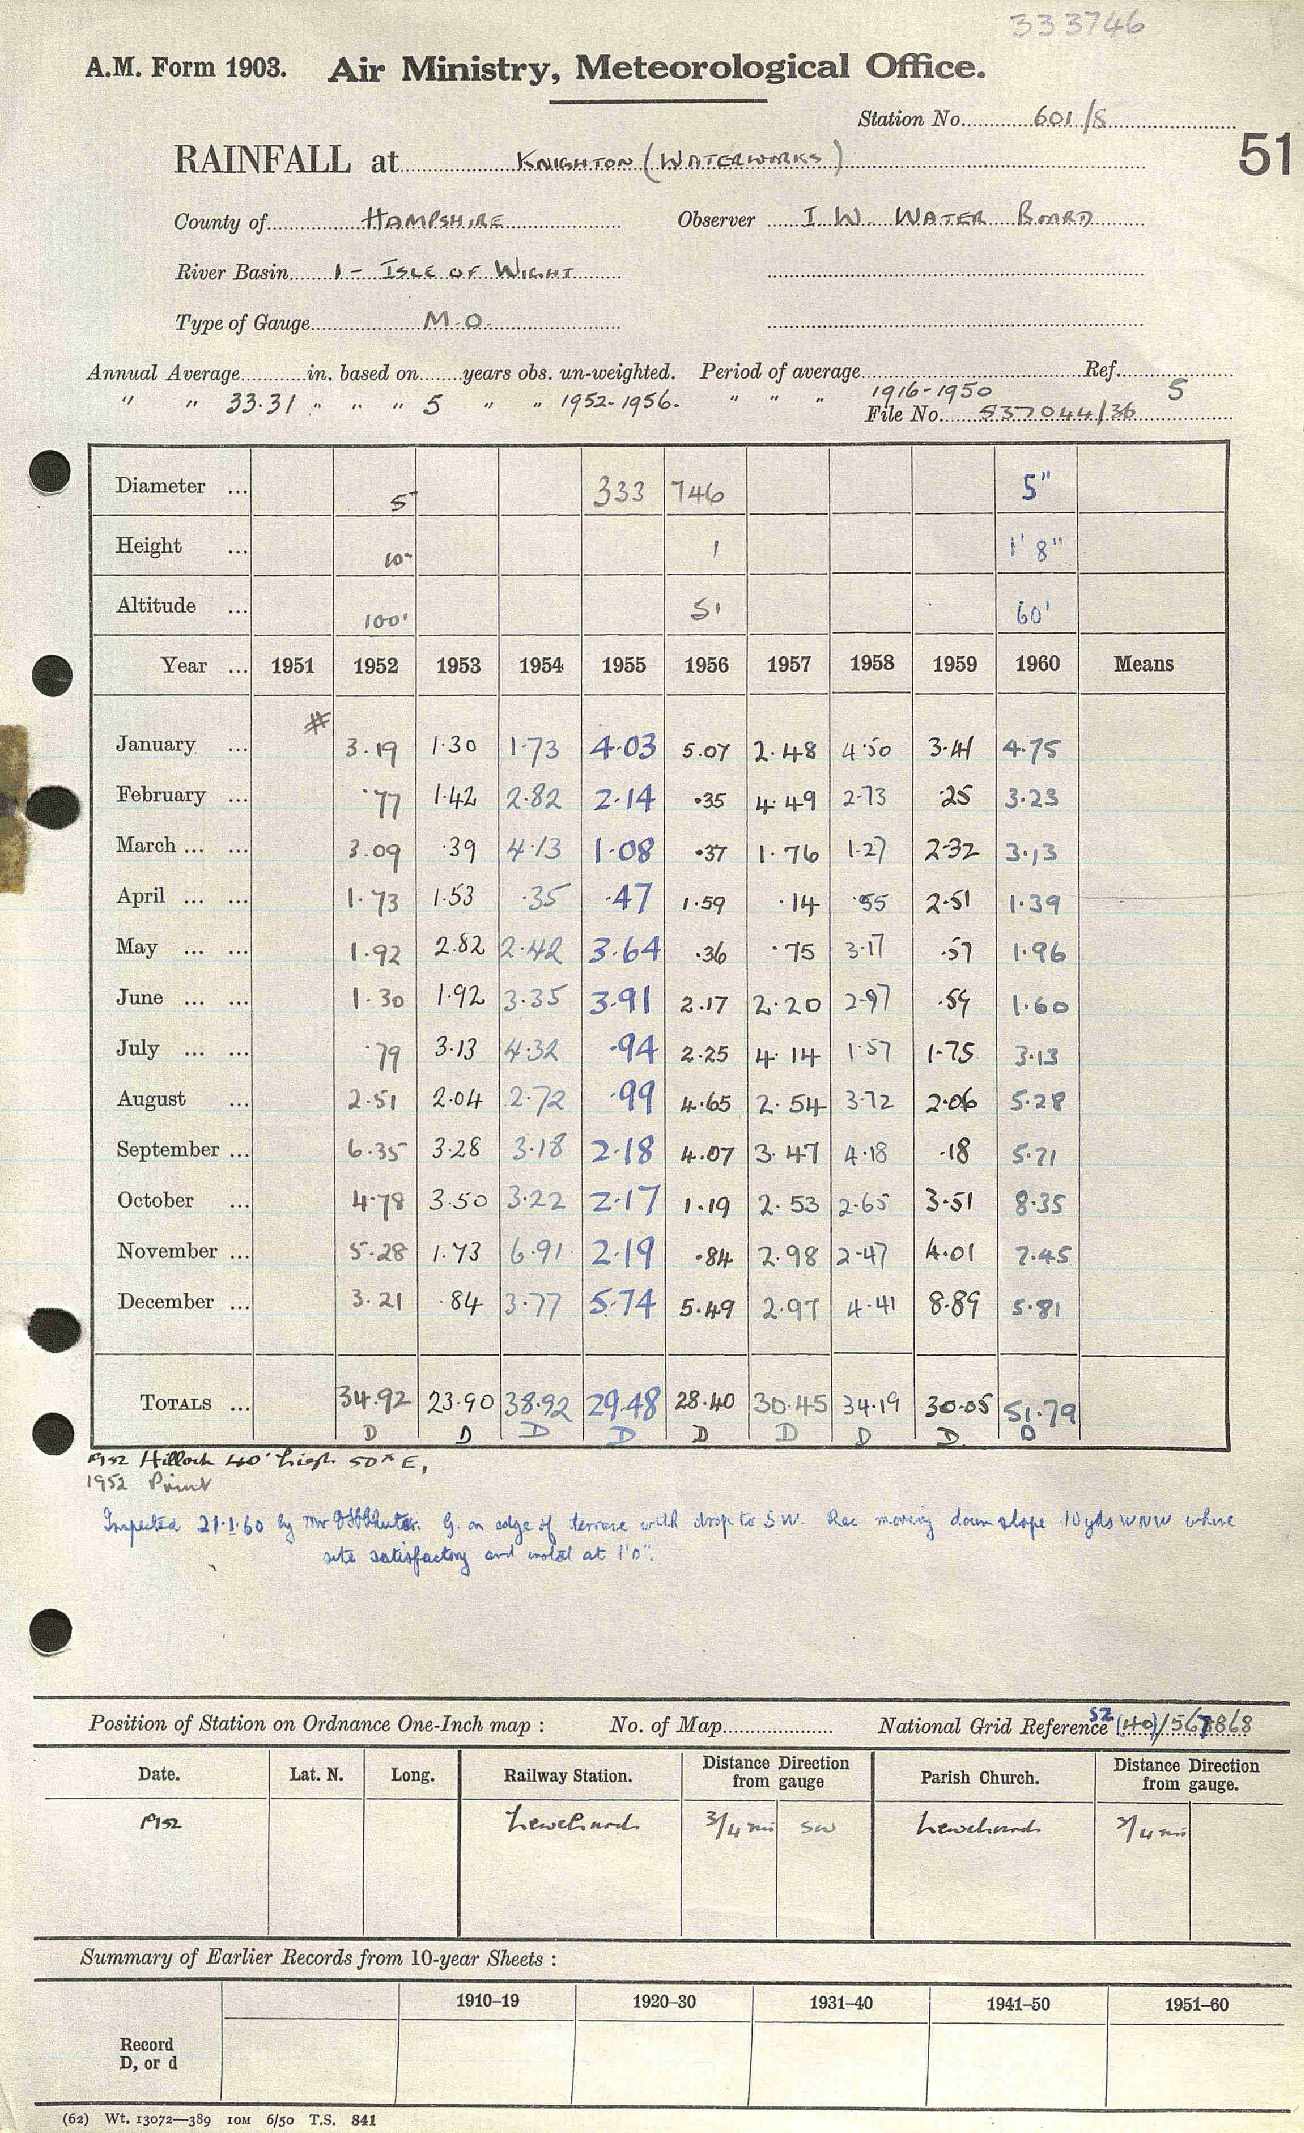 333746
A.M. Form 1903. Air Ministry, Meteorological Office.
Station No. 601/8
51
RAINFALL at KNIGHTON (WATERWORKS)
County of HAMPSHIRE Observer I.W. WATER BOARD
River Basin 1 - ISLE OF WIGHT
Type of Gauge M.O.
Annual Average in. based on years obs. un-weighted. Period of average Ref.
" " 33.31 " " " 5 " " 1952-1956. " " " 1916-1950 5
File No. 537044/36
Diameter ... 5" 333 746 5"
Height ... 10" 1 1' 8"
Altitude ... 100' 51 60'
Year ... 1951 1952 1953 1954 1955 1956 1957 1958 1959 1960 Means
#
January ... 3.19 1.30 1.73 4.03 5.07 2.48 4.50 3.41 4.75
February ... .77 1.42 2.82 2.14 .35 4.49 2.73 .25 3.23
March ... ... 3.09 .39 4.13 1.08 .37 1.76 1.27 2.32 3.13
April ... ... 1.73 1.53 .35 .47 1.59 .14 .55 2.51 1.39
May ... ... 1.92 2.82 2.42 3.64 .36 .75 3.17 .57 1.96
June ... ... 1.30 1.92 3.35 3.91 2.17 2.20 2.97 .59 1.60
July ... ... .79 3.13 4.32 .94 2.25 4.14 1.57 1.75 3.13
August ... 2.51 2.04 2.72 .99 4.65 2.54 3.72 2.06 5.28
September ... 6.35 3.28 3.18 2.18 4.07 3.47 4.18 .18 5.71
October ... 4.78 3.50 3.22 2.17 1.19 2.53 2.65 3.51 8.35
November ... 5.28 1.73 6.91 2.19 .84 2.98 2.47 4.01 7.45
December ... 3.21 .84 3.77 5.74 5.49 2.97 4.41 8.89 5.81
TOTALS ... 34.92 23.90 38.92 29.48 28.40 30.45 34.19 30.05 51.79
D D D D D D D D D
1952 Hillock 40' high 50x E.
1952
Inspected 21.1.60 by Mr G. on edge of terrace with drop to SW. Rec moving down slope 10yds WNW where
site satisfactory and instal at 1'0".
Position of Station on Ordnance One-Inch map : No. of Map National Grid Reference SZ (40)/567868
Date. Lat. N. Long. Railway Station. Distance from Direction gauge Parish Church. Distance from Direction gauge.
1952 Newchurch 3/4 mi SW Newchurch 3/4 mi
Summary of Earlier Records from 10-year Sheets :
1910-19 1920-30 1931-40 1941-50 1951-60
Record
D, or d
(62) Wt. 13072—389 10M 6/50 T.S. 841